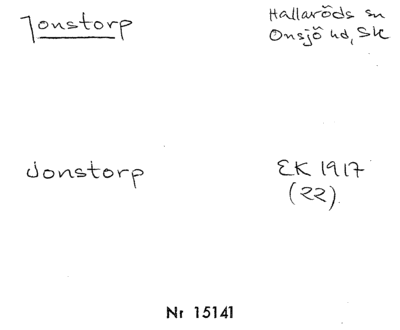 Jonstorp
Hallaröds sn
Onsjö hd, Sk
Jonstorp
EK 1917
(22)
Nr 15141